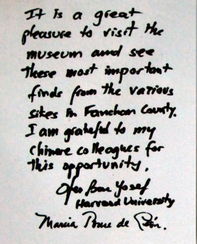 It is a great
pleasure to visit the
museum and see
these most important
finds from the various
sites in Fanchan County.
I am grateful to my
Chinese colleagues for
this opportunity.
Ofer Bar Yosef
Harvard University
Marcia Ponce de León.